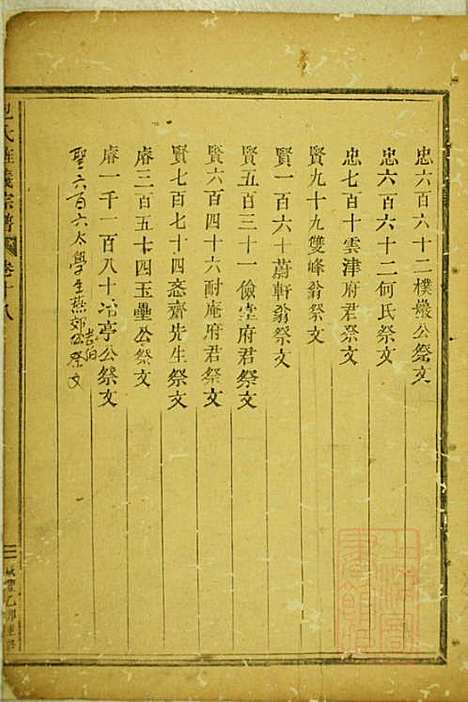 忠六百六十二樸巖公祭文
忠六百六十二何氏祭文
忠七百十雲津府君祭文
賢九十九雙峰翁祭文
賢一百六十蔚軒翁祭文
賢五百三十一儉堂府君祭文
賢六百四十六耐庵府君祭文
賢七百七十四忞齋先生祭文
睿三百五十四玉壘公祭文
睿一千一百八十亭公祭文
聖六百六太學生燕郊公祭文
氏 宗譜 卷十八
咸豐乙卯重